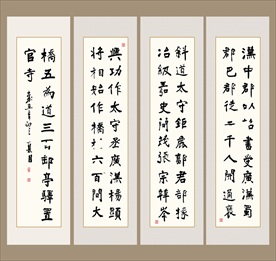 漢中郡以詔書受廣漢蜀
郡巴郡徒二千人開通褒
斜道太守鉅鹿郭君部掾
冶級弘史荀茂張宗韓岑
興功作太守丞廣漢楊顯
將相始作橋格六百間大
橋五為道三百郵亭驛置
官寺